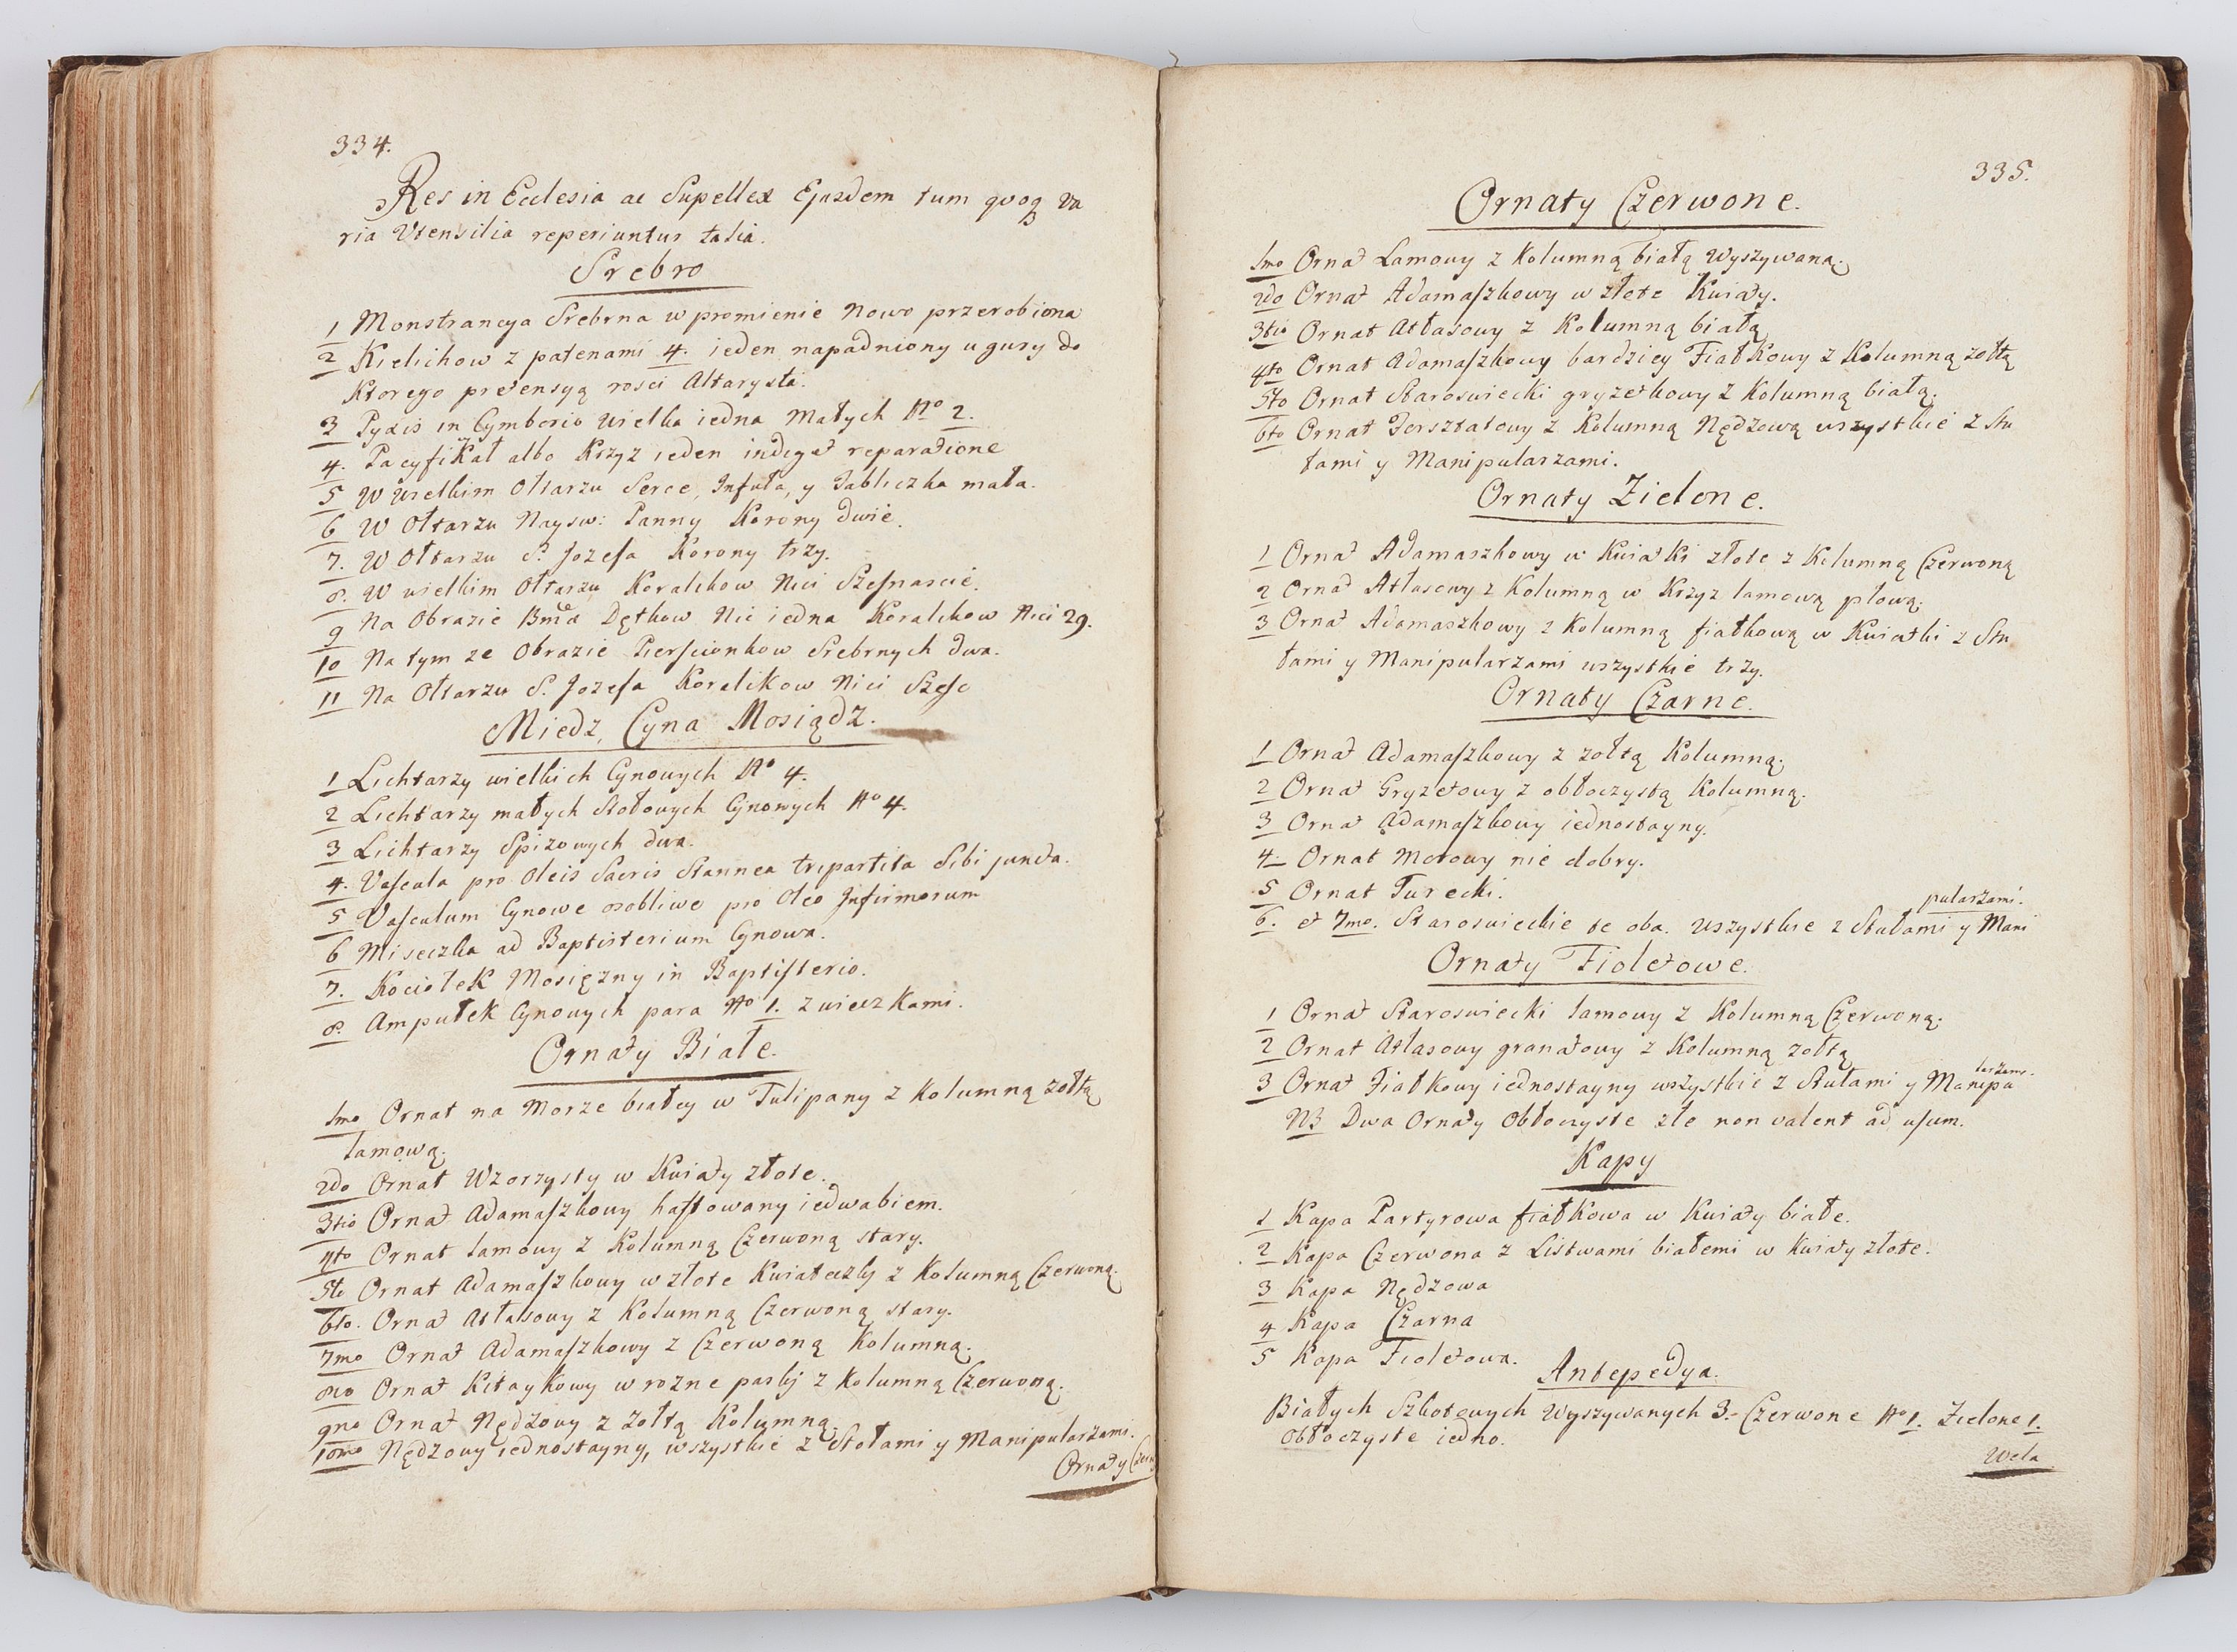 334.
Res in Ecclesia ac Supellex Ejusdem tum quoq Va
ria Utensilia reperiuntur talia.
Srebro
1 Monstrancya Srebrna w promienie Nowo przerobiona
2 Kielichow z patenami 4. ieden napadniony u gury do
Ktorego pretensyą rosci Altarysta.
3 Pyxis in Cymborio wielka iedna Małych No 2.
4. Pacyfikał albo Krzyz ieden indiget reparatione
5 W wielkim Ołtarzu Serce, Infuła, y Tabliczka mała.
6 W Ołtarzu Naysw: Panny Korony dwie.
7. W Ołtarzu S. Jozefa Korony trzy.
8. W wielkim Ołtarzu Koralikow Nici Szesnascie.
9 Na Obrazie Bmæ Dętkow Nic iedna Koralikow Nici 29.
10 Na tym ze Obrazie Pierscionkow Srebrnych dwa.
11 Na Ołtarzu S. Jozefa Koralikow Nici Szesc
Miedz, Cyna Mosiądz.
1 Lichtarzy wielkich Cynowych No 4.
2 Lichtarzy małych Stołowych Cynowych No 4.
3 Lichtarzy Spizowych dwa.
4. Vascula pro Oleis Sacris Stannea tripartita Sibi juncta.
5 Vasculum Cynowe osobliwe pro Oleo Infirmorum
6 Miseczka ad Baptisterium Cynowa.
7. Kociołek Mosięzny in Baptisterio.
8. Ampułek Cynowych para No 1. z wieczkami.
Ornaty Białe.
1mo Ornat na Morze białey w Tulipany z Kolumną zołtą
lamową.
2do Ornat Wzorzysty w Kwiaty złote.
3tio Ornat Adamaszkowy haftowany iedwabiem.
4to Ornat lamowy z Kolumną Czerwoną stary.
5to Ornat Adamaszkowy w złote Kwiateczky z Kolumną Czerwoną.
6to. Ornat Atłasowy z Kolumną Czerwoną stary.
7mo Ornat Adamaszkowy z Czerwoną Kolumną.
8vo Ornat Kitaykowy w rozne pasky z Kolumną Czerwoną.
9no Ornat Nędzowy z zołtą Kolumną.
10mo Nędzowy iednostayny, wszystkie z Stołami y Manipularzami.
Ornaty Czerw
335.
Ornaty Czerwone.
1mo Ornat Lamowy z Kolumną białą Wyszywaną.
2do Ornat Adamaszkowy w złote Kwiaty.
3tio Ornat Atłasowy z Kolumną białą
4to Ornat Adamaszkowy bardziey Fiałkowy z Kolumną zołtą
5to Ornat Staroswiecki gryzetkowy z Kolumną białą.
6to Ornat Tersztatowy z Kolumną Nędzową wszystkie z Stu
łami y Manipularzami.
Ornaty Zielone.
1 Ornat Adamaszkowy w Kwiatki złote z Kolumną Czerwoną
2 Ornat Atłasowy z Kolumną w Krzyz lamową płową.
3 Ornat Adamaszkowy z Kolumną fiałkową w Kwiatki z Stu
łami y Manipularzami wszystkie trzy.
Ornaty Czarne.
1 Ornat Adamaszkowy z zołtą Kolumną.
2 Ornat Gryzetowy z obłoczystą Kolumną.
3 Ornat Adamaszkowy iednostayny.
4. Ornat Morowy nie dobry.
5 Ornat Turecki.
6. et 7mo. Staroswieckie te oba. Wszystkie z Stułami y Mani
pularzami.
Ornaty Fioletowe.
1 Ornat Staroswiecki lamowy z Kolumną Czerwoną.
2 Ornat Atlasowy granatowy z Kolumną zołtą
3 Ornat Fiałkowy iednostayny wszystkie z Stułami y Manipu
larzami.
NB Dwa Ornaty Obłoczyste złe non valent ad usum.
Kapy
1 Kapa Partyrowa fiałkowa w Kwiaty białe.
2 Kapa Czerwona z Listwami białemi w kwiaty złote.
3 Kapa Nędzowa
4 Kapa Czarna
5 Kapa Fioletowa.
Antepedya.
Białych Szkotowych Wyszywanych 3.- Czerwone No 1. Zielone 1.
Obłoczyste iedno.
Wela